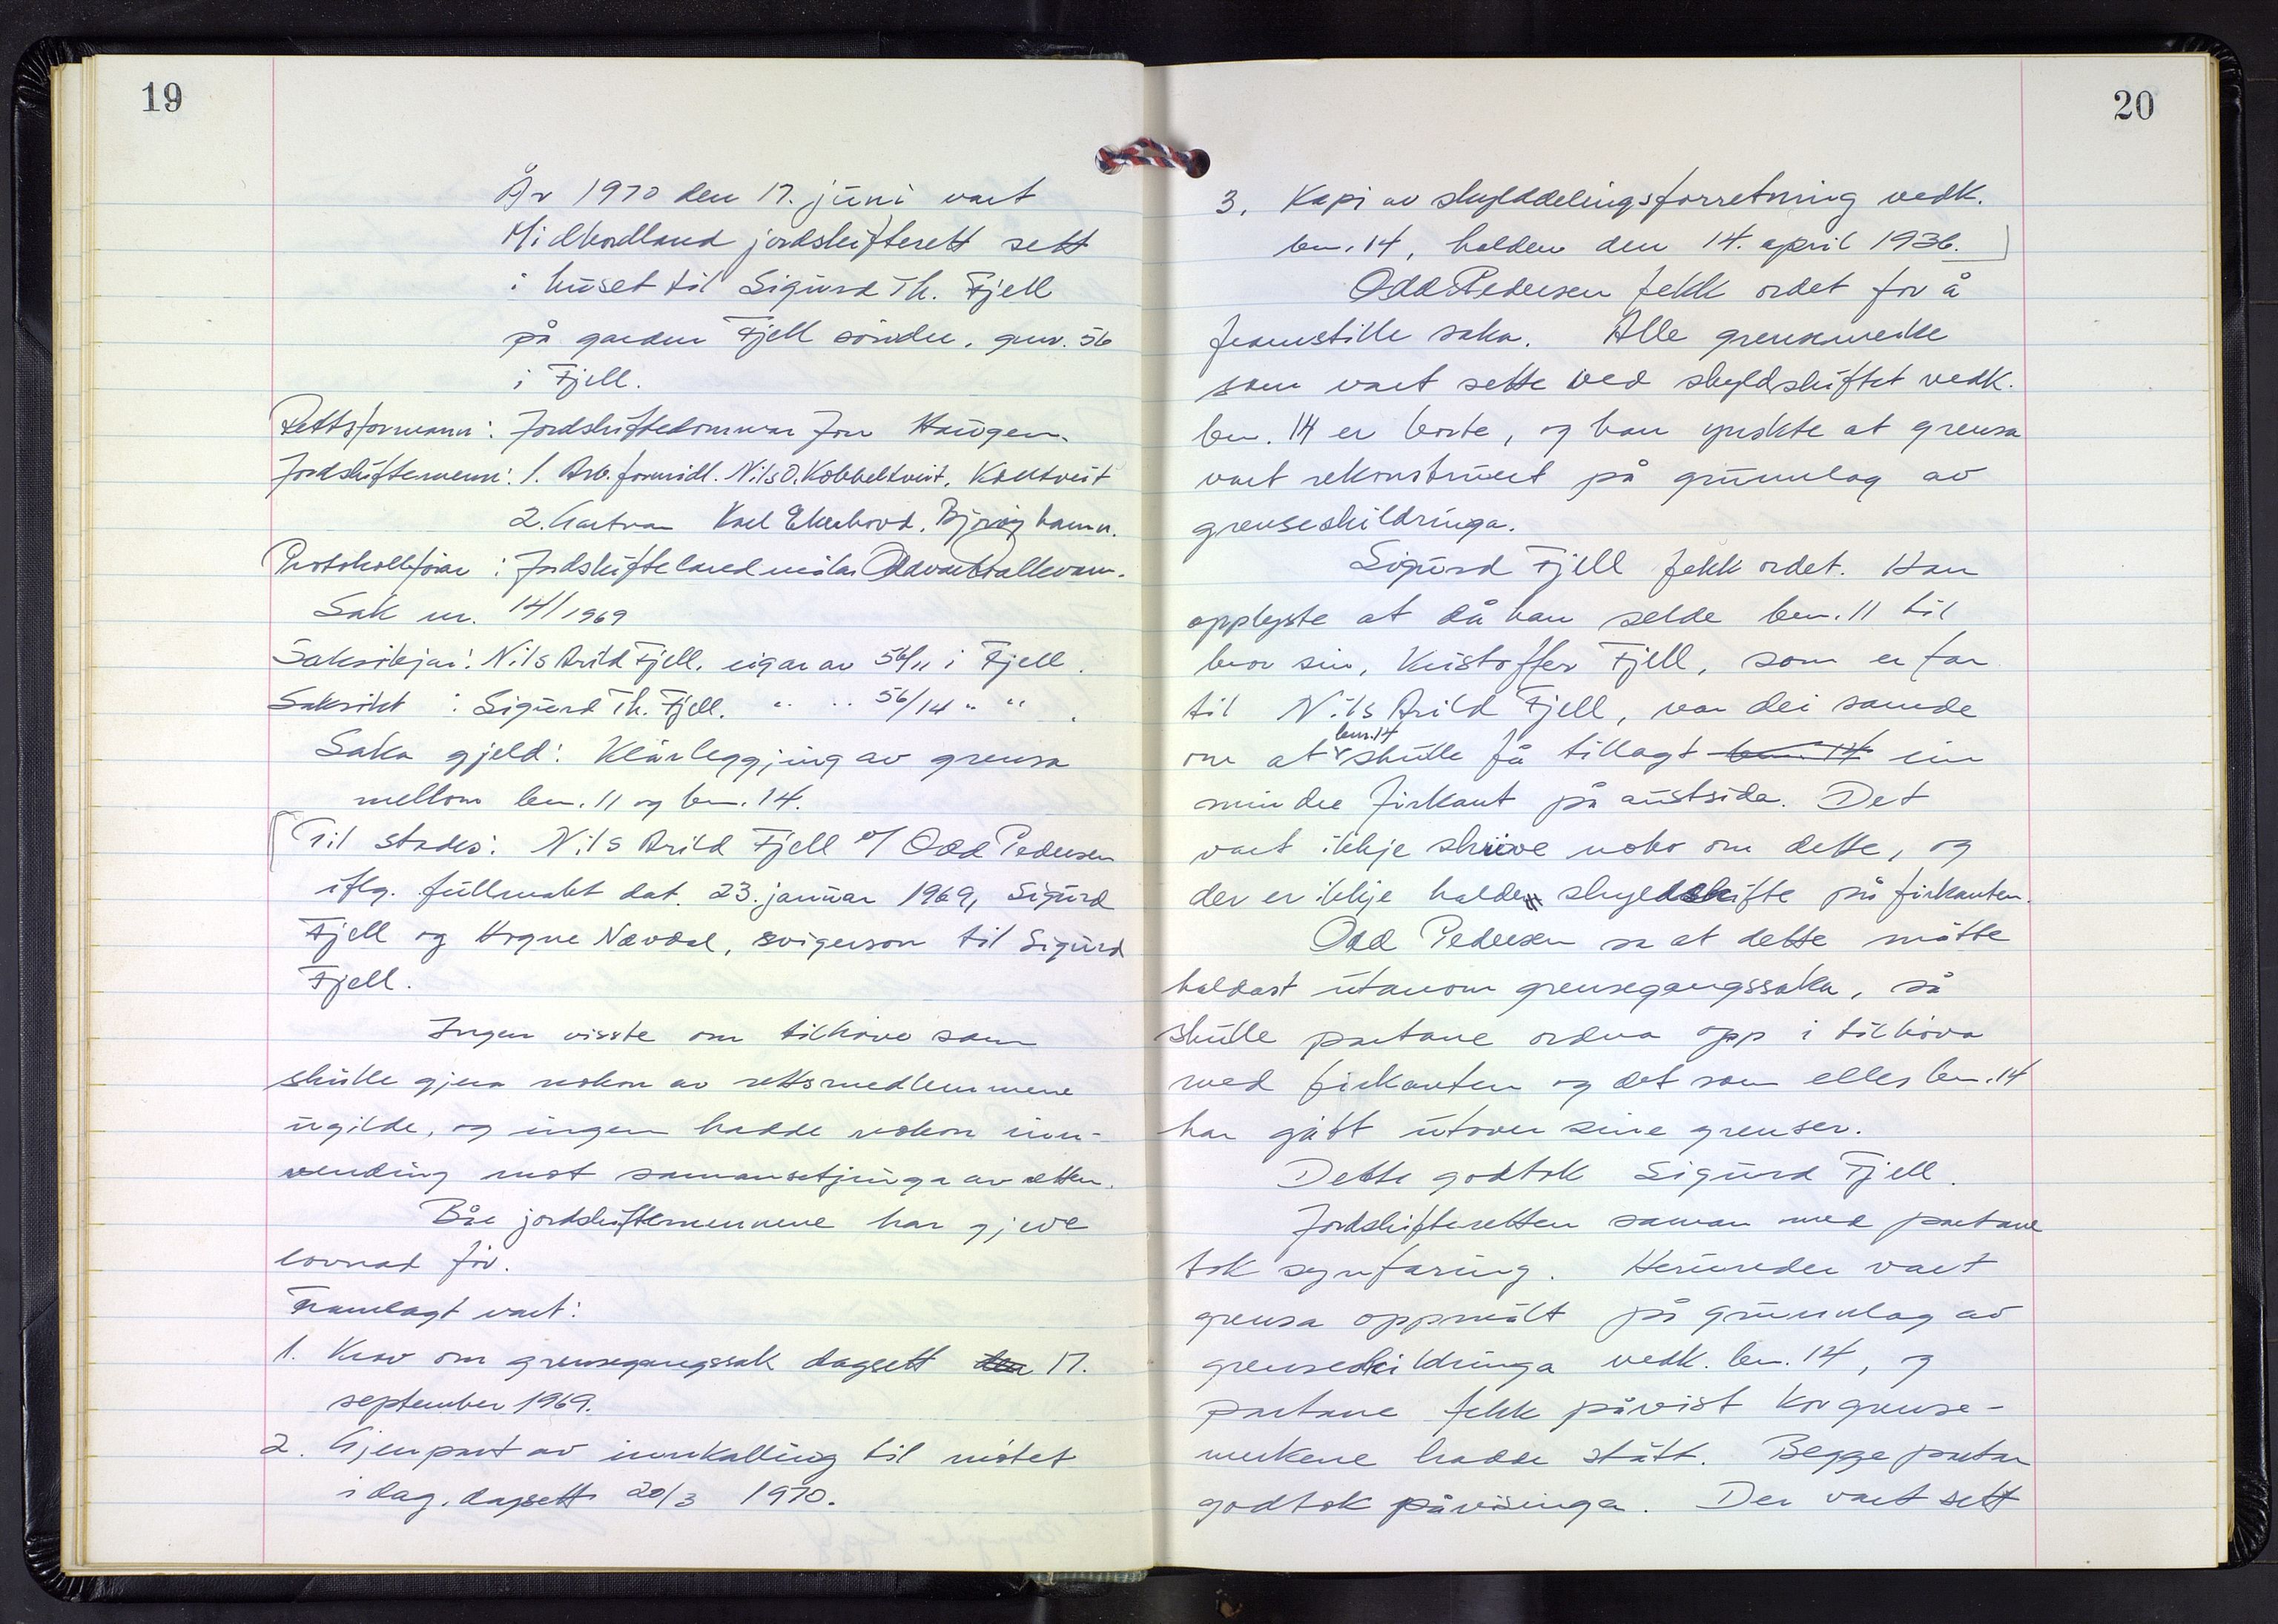 19
År 1970 den 17. juni vart
Midhordland jordskifterett sett
i huset til Sigurd Th. Fjell
på garden Fjell søndre, gnr. 56
i Fjell.
Rettsformann: Jordskiftedommar Jon Haugen.
Jordskiftemenn: 1. Arb.formidl. Nils O. Kobbeltveit, Kolltveit
2. Gartnar Karl Ekerhovd, Bjørøyhamn.
Protokollførar: Jordskiftelandmålar Oddvar
Sak nr. 14/1969
Saksøkjar: Nils Arild Fjell, eigar av 56/11 i Fjell.
Saksøkt : Sigurd Th. Fjell, " " 56/14 " "
Saka gjeld: Klårleggjing av grensa
mellom bnr. 11 og bnr. 14.
Til stades: Nils Arild Fjell v/ Odd Pedersen
iflg. fullmakt dat. 23. januar 1969, Sigurd
Fjell og Hogne Nævdal, svigerson til Sigurd
Fjell.
Ingen visste om tilhøve som
skulle gjera nokon av rettsmedlemmene
ugilde, og ingen hadde nokon inn-
vending mot samansetjinga av retten.
Båe jordskiftemennene har gjeve
lovnad før.
Framlagt vart:
1. Krav om grensegangssak dagsett den 17.
september 1969.
2. Gjenpart av innkalling til møtet
i dag, dagsett 20/3 1970.
20
3. Kopi av skylddelingsforretning vedk.
bnr. 14, halden den 14. april 1936.
Odd Pedersen fekk ordet for å
framstille saka. Alle grensemerke
som vart sette ved skyldskiftet vedk.
bnr. 14 er borte, og han ynskte at grensa
vart rekonstruert på grunnlag av
grenseskildringa.
Sigurd Fjell fekk ordet. Han
opplyste at då han selde bnr. 11 til
bror sin, Kristoffer Fjell, som er far
til Nils Arild Fjell, var dei samde
om at bnr. 14 skulle få tillagt bnr. 14 ein
mindre firkant på austsida. Det
vart ikkje skrive noko om dette, og
der er ikkje halde skyldskifte på firkanten.
Odd Pedersen sa at dette måtte
haldast utanom grensegangssaka, så
skulle partane ordna opp i tilhøva
med firkanten og det som elles bnr. 14
har gått utover sine grenser.
Dette godtok Sigurd Fjell.
Jordskifteretten saman med partane
tok synfaring. Herunder vart
grensa oppmålt på grunnlag av
grenseskildringa vedk. bnr. 14, og
partane fekk påvist kor grense-
merkene hadde stått. Begge partar
godtok påvisinga. Der vart sett